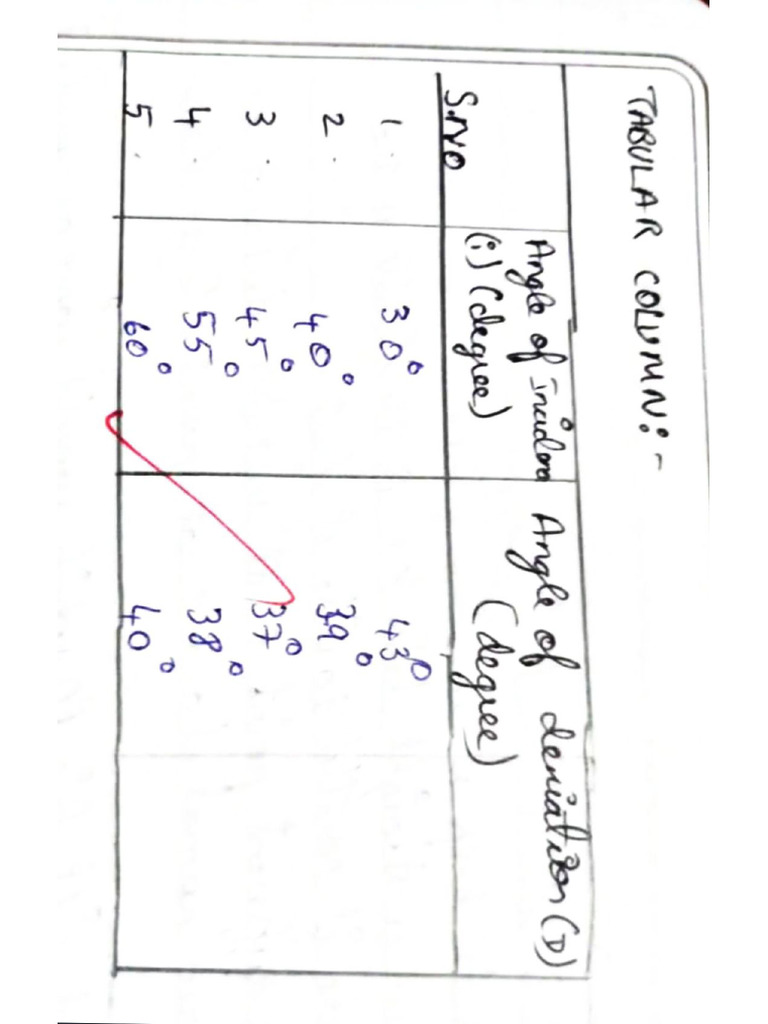 TABULAR COLUMN:-
S.NO Angle of incidence Angle of deviation (D)
(i) (degree) (degree)
1 30° 43°
2 40° 39°
3 45° 37°
4 55° 38°
5 60° 40°